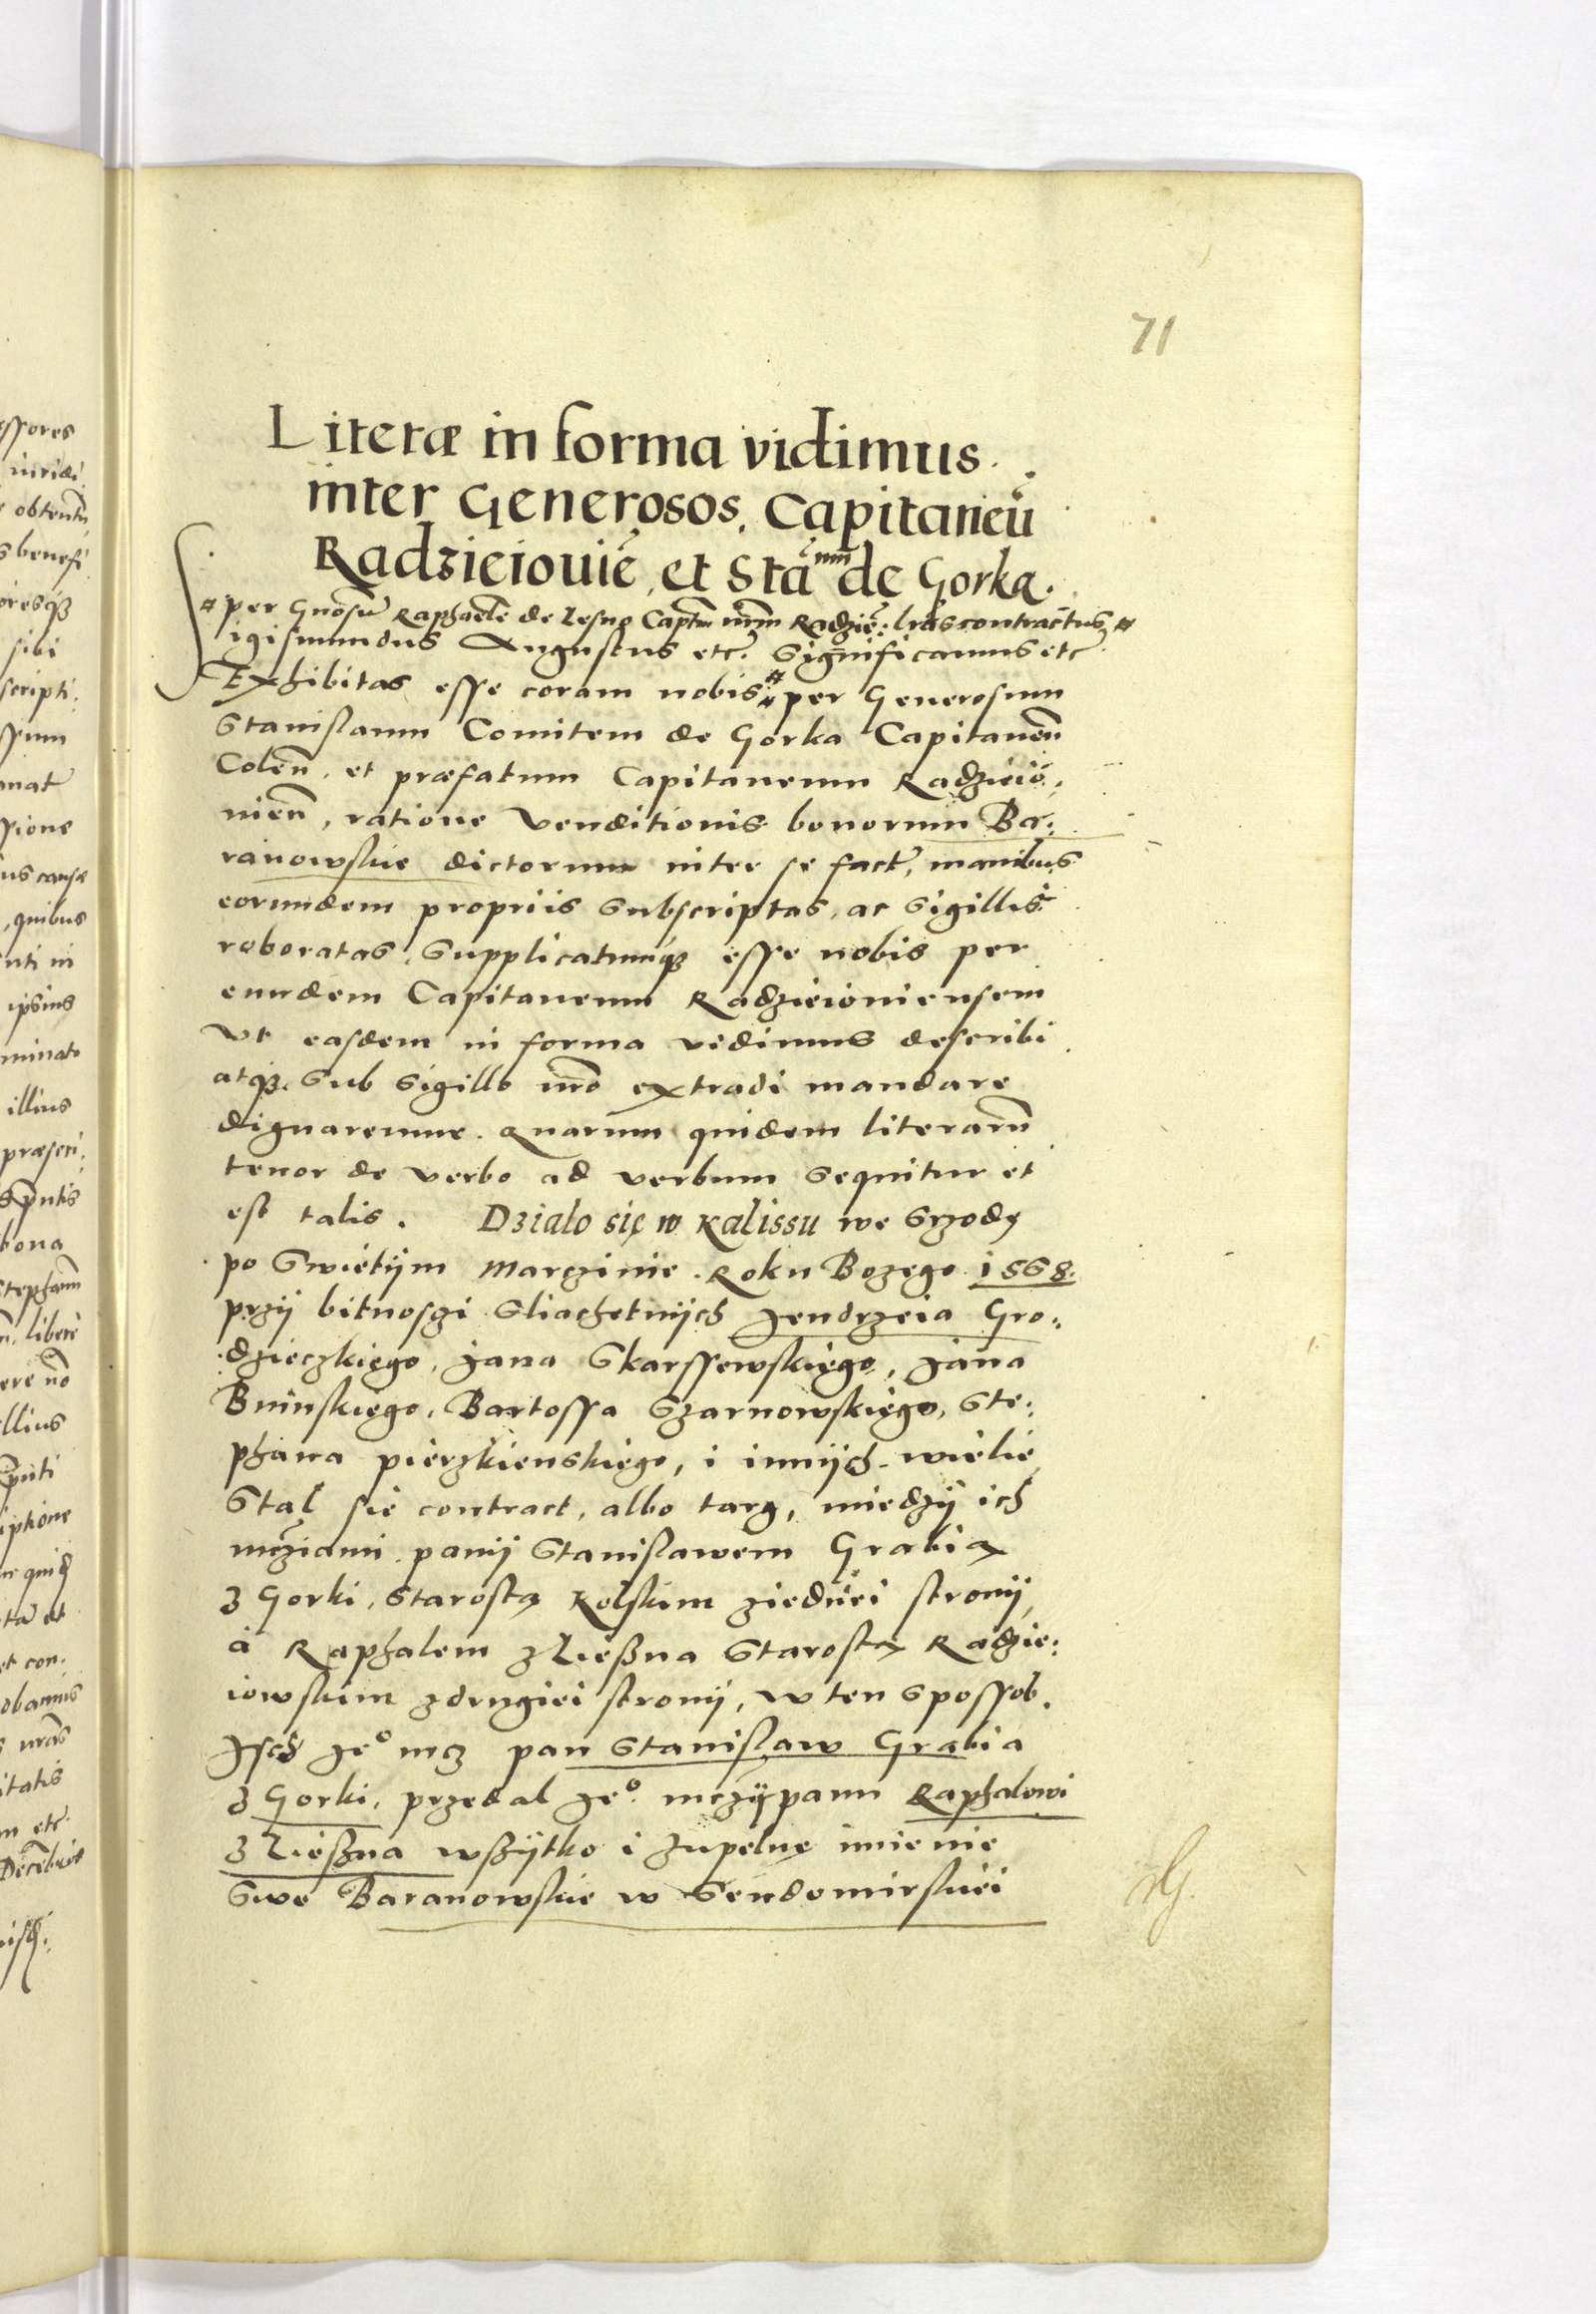 71
Literæ in forma vidimus
inter Generosos, Capitaneu̅
Radzieiouie̅, et Sta̅num de Gorka.
¤ per Gnosu̅ Raphaele̅ de Lesno Captm nrm Radzie̅: lr̅as contractus ¤
Sigismundus Augustus etc. Significamus etc
Exhibitas esse coram nobis ¤ per Generosum
Stanislaum Comitem de Gorka Capitanen̅
Colen̅, et præfatum Capitaneum Radzieio:
uien̅, ratione Venditionis bonorum Ba:
ranowskie dictorum inter se fact̅, manibus
eorundem propriis subscriptas, ac Sigillis
roboratas, Supplicatumq3 esse nobis per
eundem Capitaneum Radzieiouiensem
Vt easdem in forma vidimus describi
atq3. Sub Sigillo nr̅o extradi mandare
dignaremur. Quarum quidem literaru̅
tenor de verbo ad verbum sequitur et
est talis. Dzialo się w Kalissu we Srzodę
po Swiętijm Marczinie. Roku Bozego 1568.
przij bitnosczi Sliachetnijch Jendrzeia Gro:
:dzieczkięgo, Jana Skarssewskięgo, Jana
Bninskięgo, Bartossa Szarnowskięgo, Ste:
phana pierzkienskięgo, i innijch wielie
Stal sie contract, albo targ, miedzij ich
mcziami panij Stanislawem Grabią
z Gorki, Starostą Kolskim ziednei stronij,
à Raphalem z Ließna Starostą Radzie:
iowskim zdrugiei stronij, w ten spossob.
Jsch Je° mcz pan Stanislaw Grabia
z Gorki, przedal Je°. mczij panu Raphalowi
z Ließna wßijtko i zupelnę imienie
Swe Baranowskie w Sendomirskiei